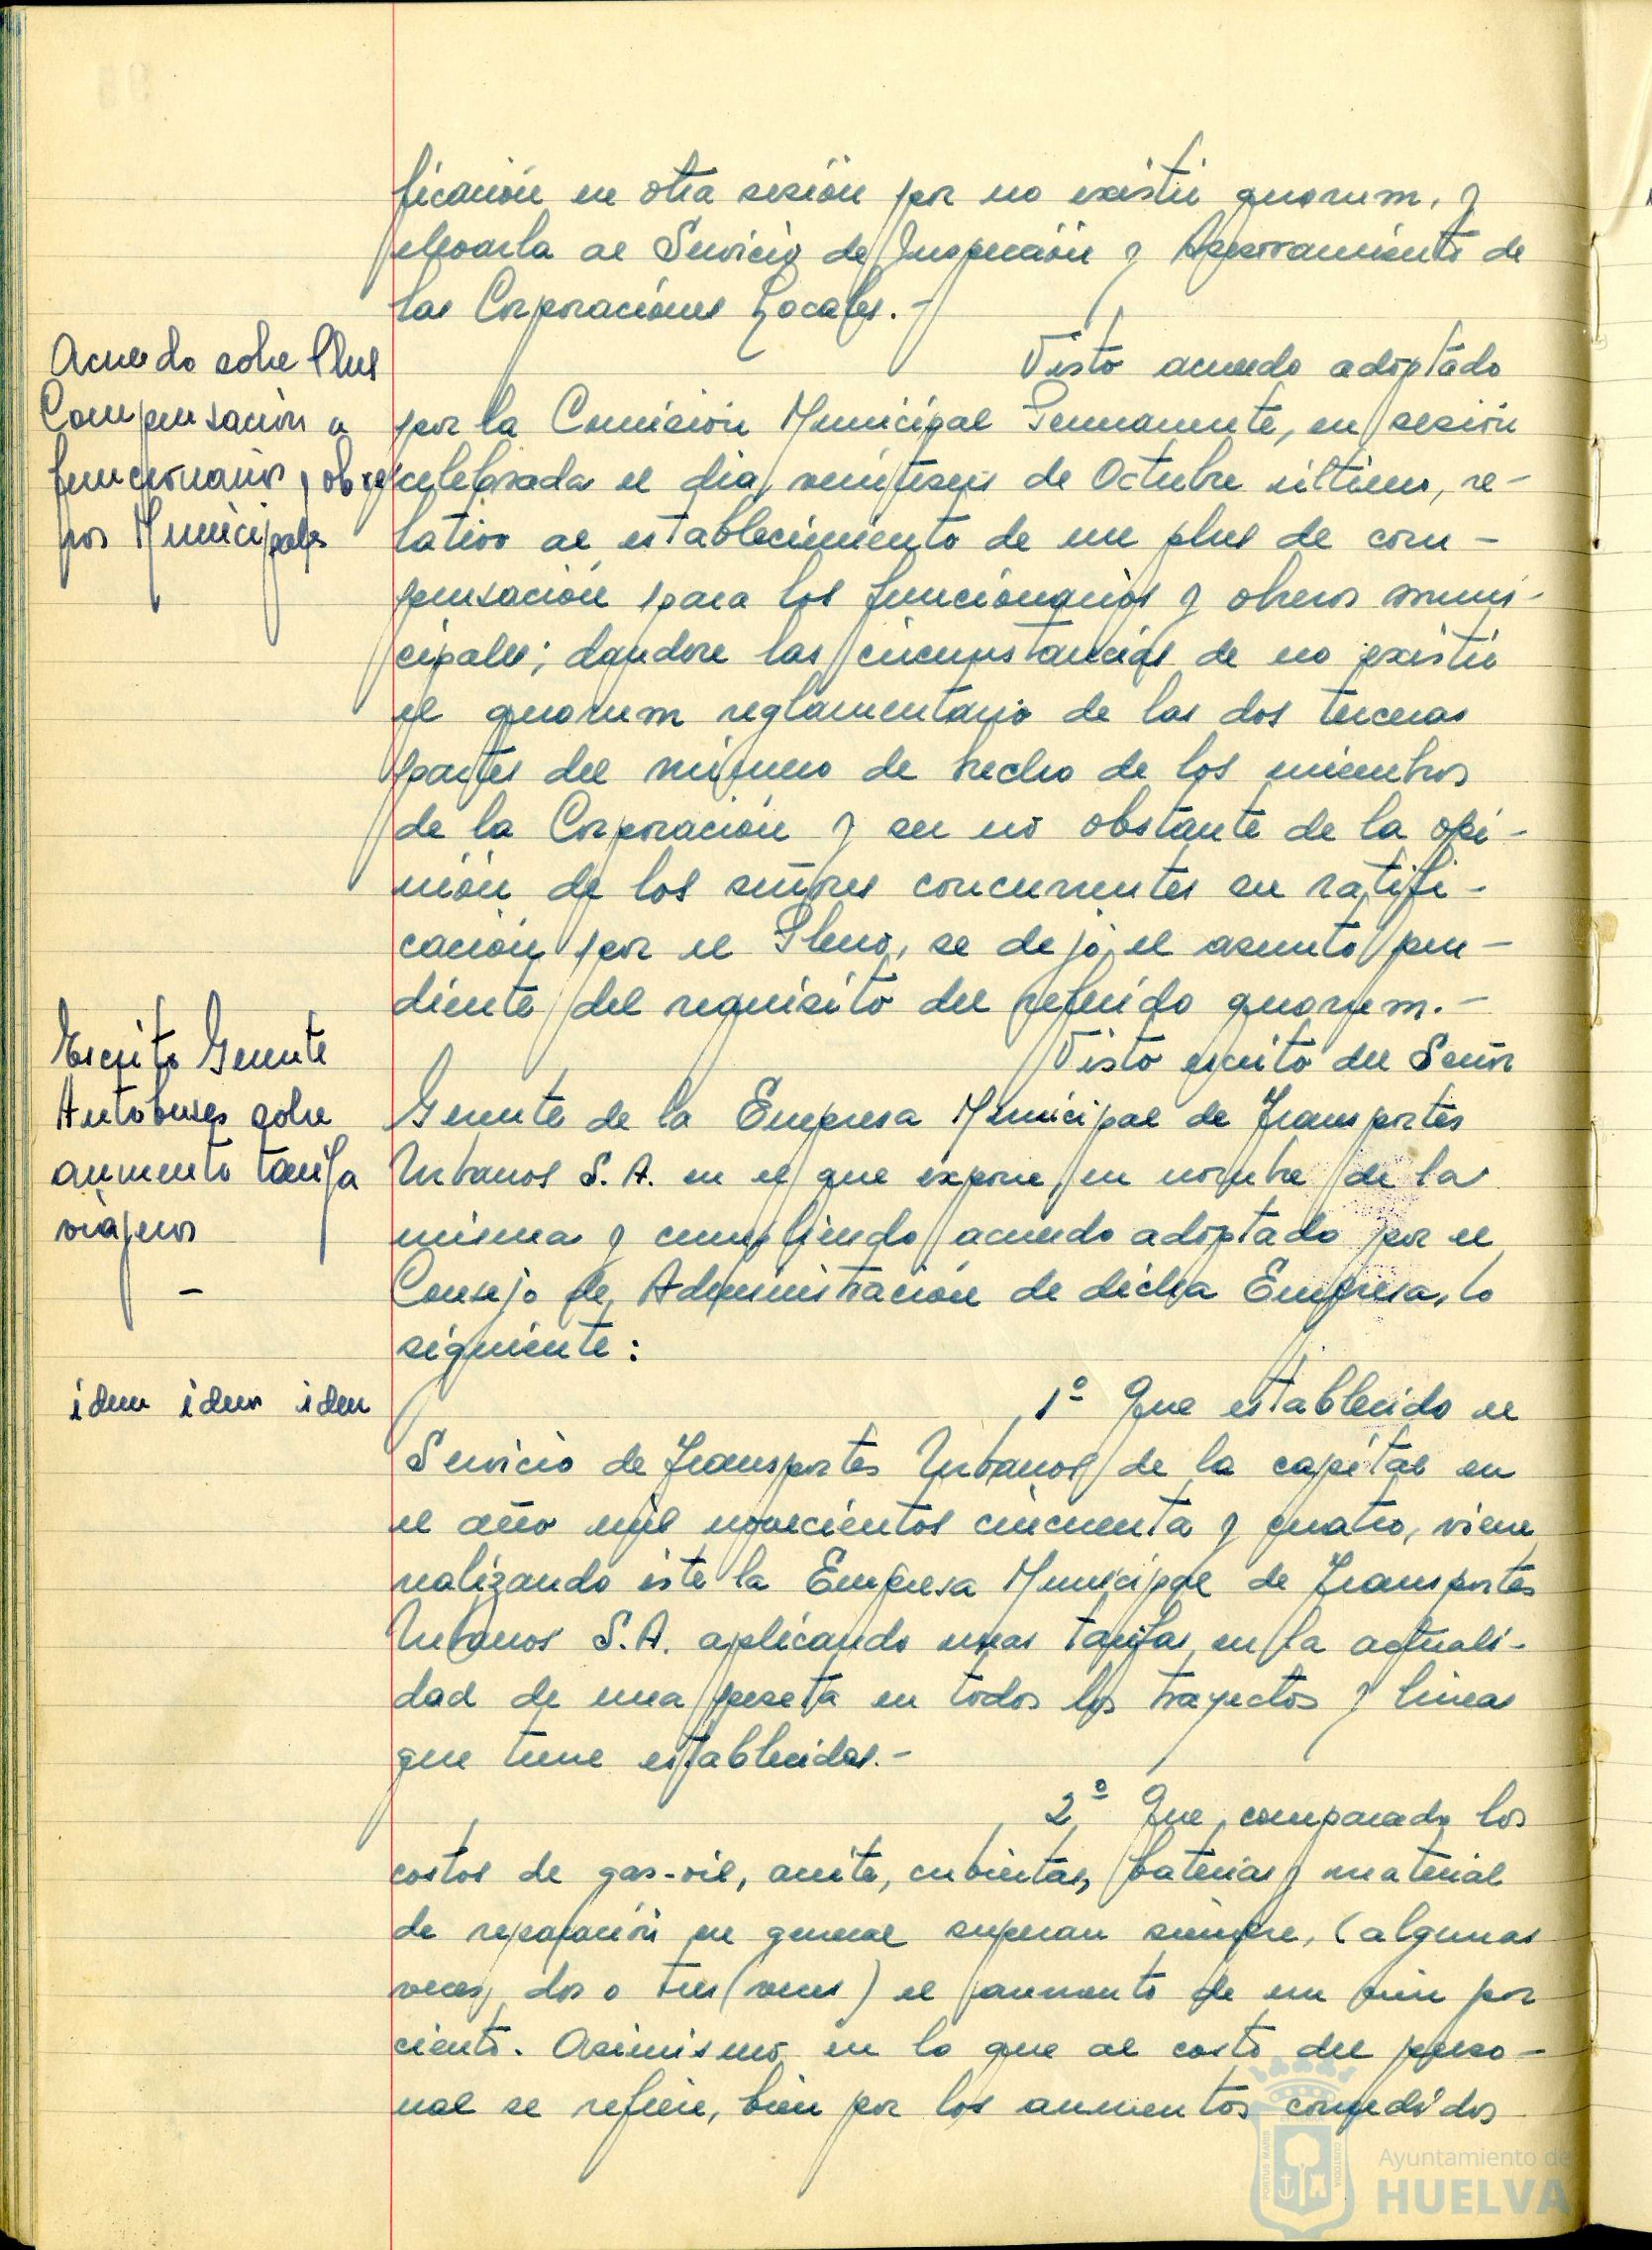 ficación en otra sesión por no existir quorum, y
elevarla al Servicio de Inspección y Asesoramiento de
las Corporaciones Locales.-
Acuerdo sobre Plus
Compensación a
funcionarios y obre
ros Municipales
Visto acuerdo adoptado
por la Comisión Municipal Permanente, en sesión
celebrada el dia veintiseis de Octubre último, re-
lativo al establecimiento de un plus de com-
pensación para los funcionarios y obreros muni-
cipales; dandose las circunstancias de no existir
el quorum reglamentario de las dos terceras
partes del número de hecho de los miembros
de la Corporación y en no obstante de la opi-
nión de los señores concurrentes su ratifi-
cación por el Pleno, se dejó el asunto pen-
diente del requisito del referido quorum.-
Escrito Gerente
Autobuses sobre
aumento tarifa
viajeros
-
Visto escrito del Señor
Gerente de la Empresa Municipal de Transportes
Urbanos S.A. en el que expone en nombre de la
misma y cumpliendo acuerdo adoptado por el
Consejo de Administración de dicha Empresa, lo
siguiente:
idem idem idem
1º Que establecido el
Servicio de Transportes Urbanos de la capital en
el año mil novecientos cincuenta y cuatro, viene
realizando éste la Empresa Municipal de Transportes
Urbanos S.A. aplicando unas tarifas en la actuali-
dad de una peseta en todos los trayectos y lineas
que tiene establecidas.-
2º Que, comparado los
costos de gas-oil, aceite, cubiertas, baterias y material
de reparación en general superan siempre, (algunas
veces, dos o tres veces) el aumento de un cien por
ciento. Asimismo en lo que al costo del perso-
nal se refiere, bien por los aumentos concedidos
PORTUS MARIS
CUSTODIA
Ayuntamiento de
HUELVA